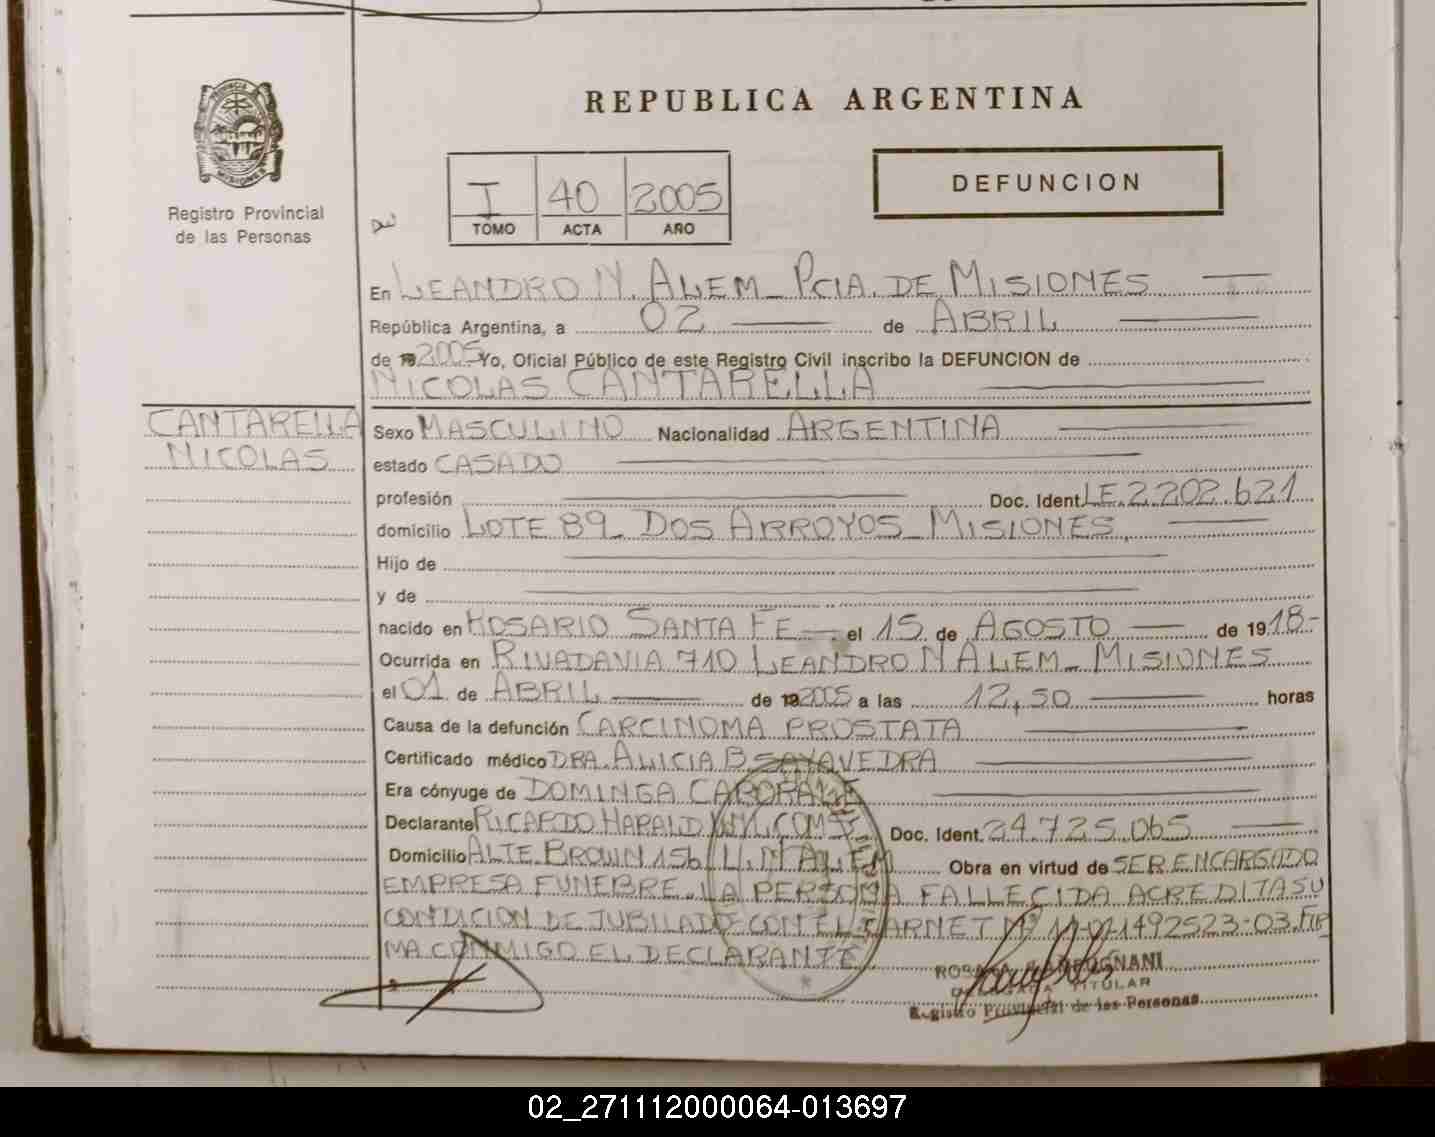 REPUBLICA ARGENTINA
PROVINCIA DE
MISIONES
Registro Provincial
de las Personas
I 40 2005
TOMO ACTA AÑO
DEFUNCION
En LEANDRO N. ALEM - PCIA. DE MISIONES
República Argentina, a 02 de ABRIL
de 2005 Yo, Oficial Público de este Registro Civil inscribo la DEFUNCION de
NICOLAS CANTARELLA
CANTARELLA
NICOLAS
Sexo MASCULINO Nacionalidad ARGENTINA
estado CASADO
profesión Doc. Ident. LE. 2.202.621
domicilio LOTE 89 - DOS ARROYOS - MISIONES
Hijo de
y de
nacido en ROSARIO SANTA FE el 15 de AGOSTO de 1918-
Ocurrida en RIVADAVIA 710 LEANDRO N ALEM - MISIONES
el 01 de ABRIL de 2005 a las 12,50 horas
Causa de la defunción CARCINOMA PROSTATA
Certificado médico DRA. ALICIA B SAYAVEDRA
Era cónyuge de DOMINGA
Declarante RICARDO HARALD Doc. Ident. 24.725.065
Domicilio ALTE. BROWN 156 L. N ALEM Obra en virtud de SER ENCARGADO
EMPRESA FUNEBRE. LA PERSONA FALLECIDA ACREDITA SU
CONDICION DE JUBILADO CON EL CARNET Nº FIR
MA CONMIGO EL DECLARANTE
TITULAR
Registro Provincial de las Personas
02_271112000064-013697